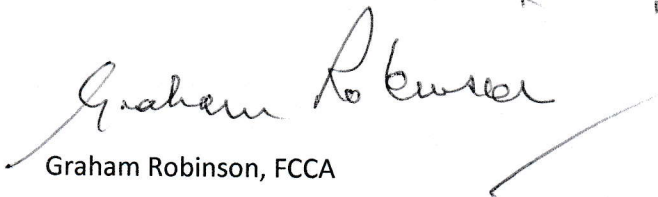 Graham Robinson
Graham Robinson, FCCA